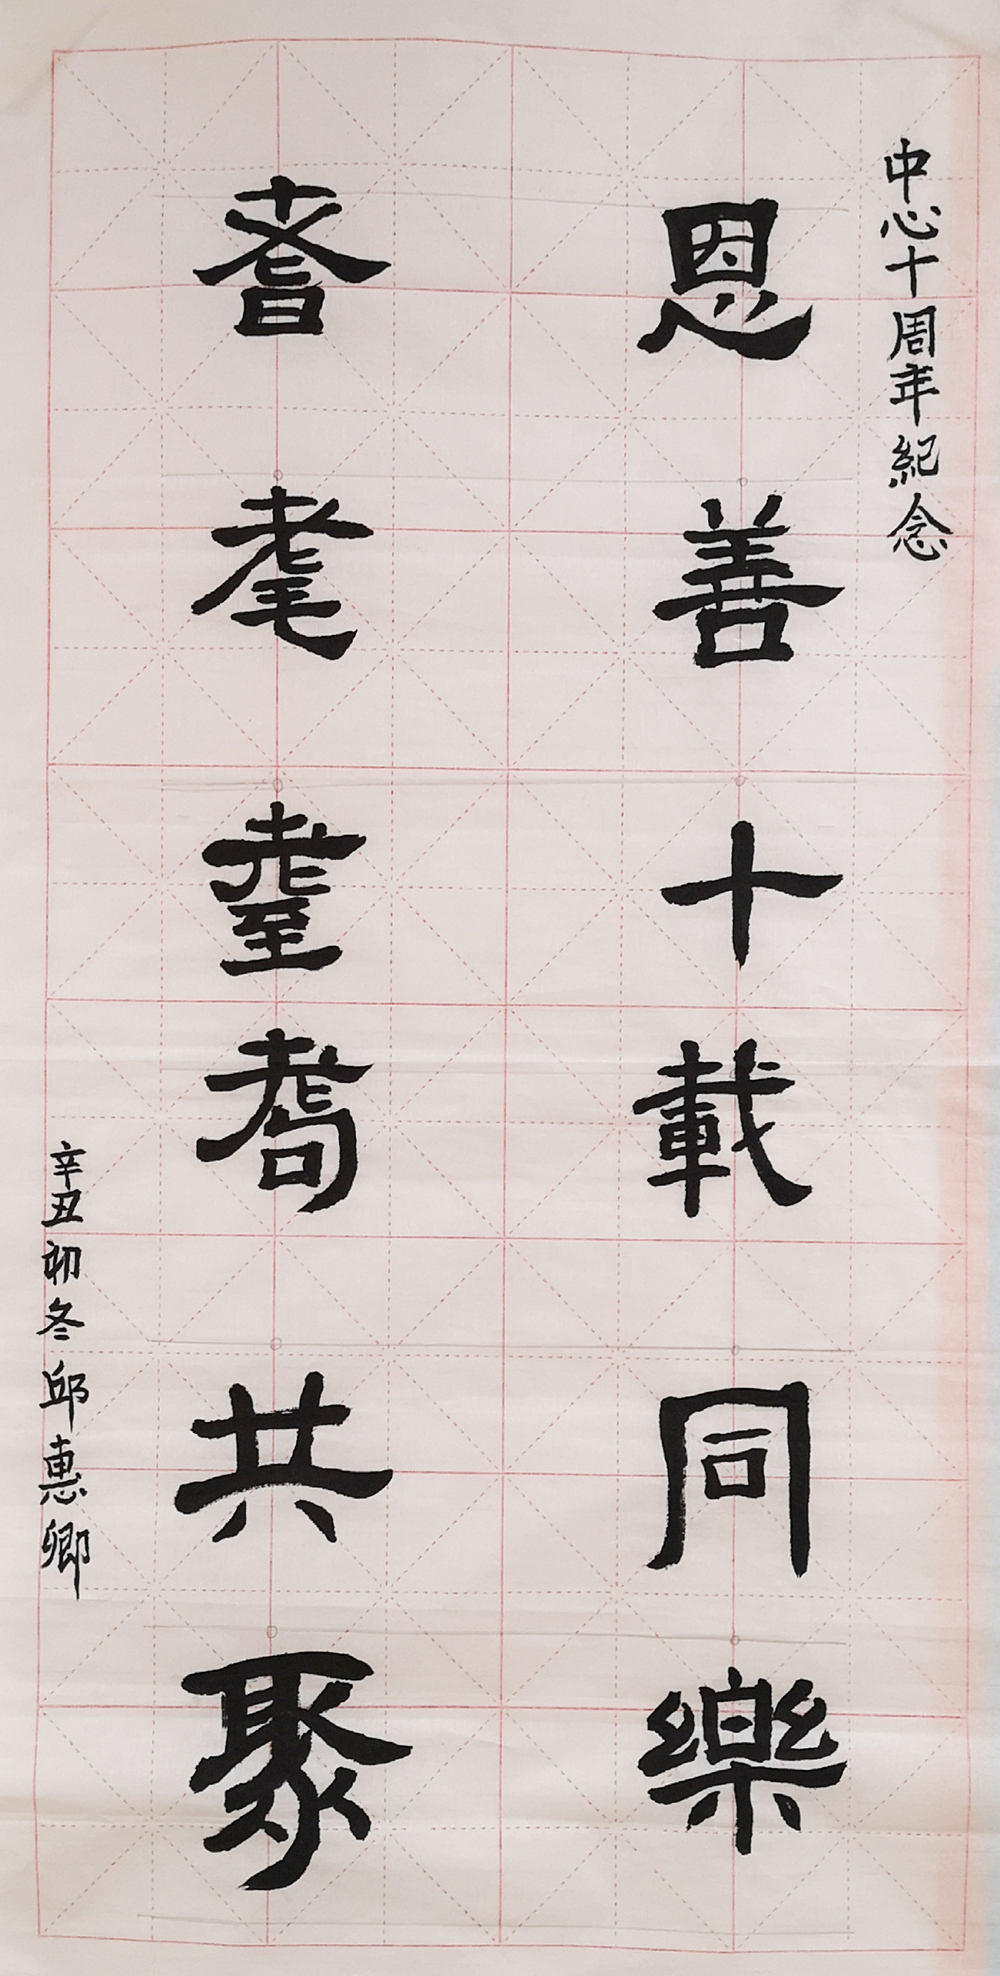 中心十周年紀念
恩善十載同樂
耆耄耋耇共聚
辛丑初冬邱惠卿